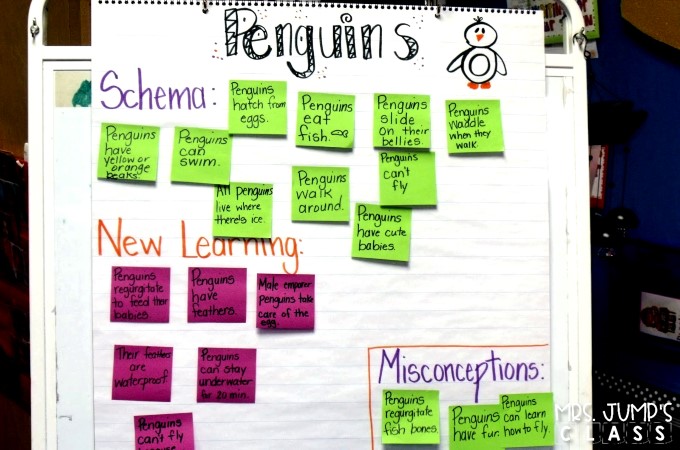 Penguins
Schema:
Penguins
hatch from
eggs.
Penguins
eat
fish.
Penguins
slide
on their
bellies.
Penguins
waddle
when they
walk.
Penguins
have
yellow or
orange
beaks.
Penguins
can
swim.
Penguins
can't
fly
All penguins
live where
there's ice.
Penguins
walk
around.
Penguins
have cute
babies.
New Learning:
Penguins
regurgitate
to feed their
babies.
Penguins
have
feathers.
Male emporer
penguins take
care of the
egg.
Their feathers
are
waterproof.
Penguins
can stay
underwater
for 20 min.
Penguins
can't fly
because
Misconceptions:
Penguins
regurgitate
fish bones.
Penguins
have fur.
Penguins
can learn
how to fly.
MRS. JUMP'S
CLASS